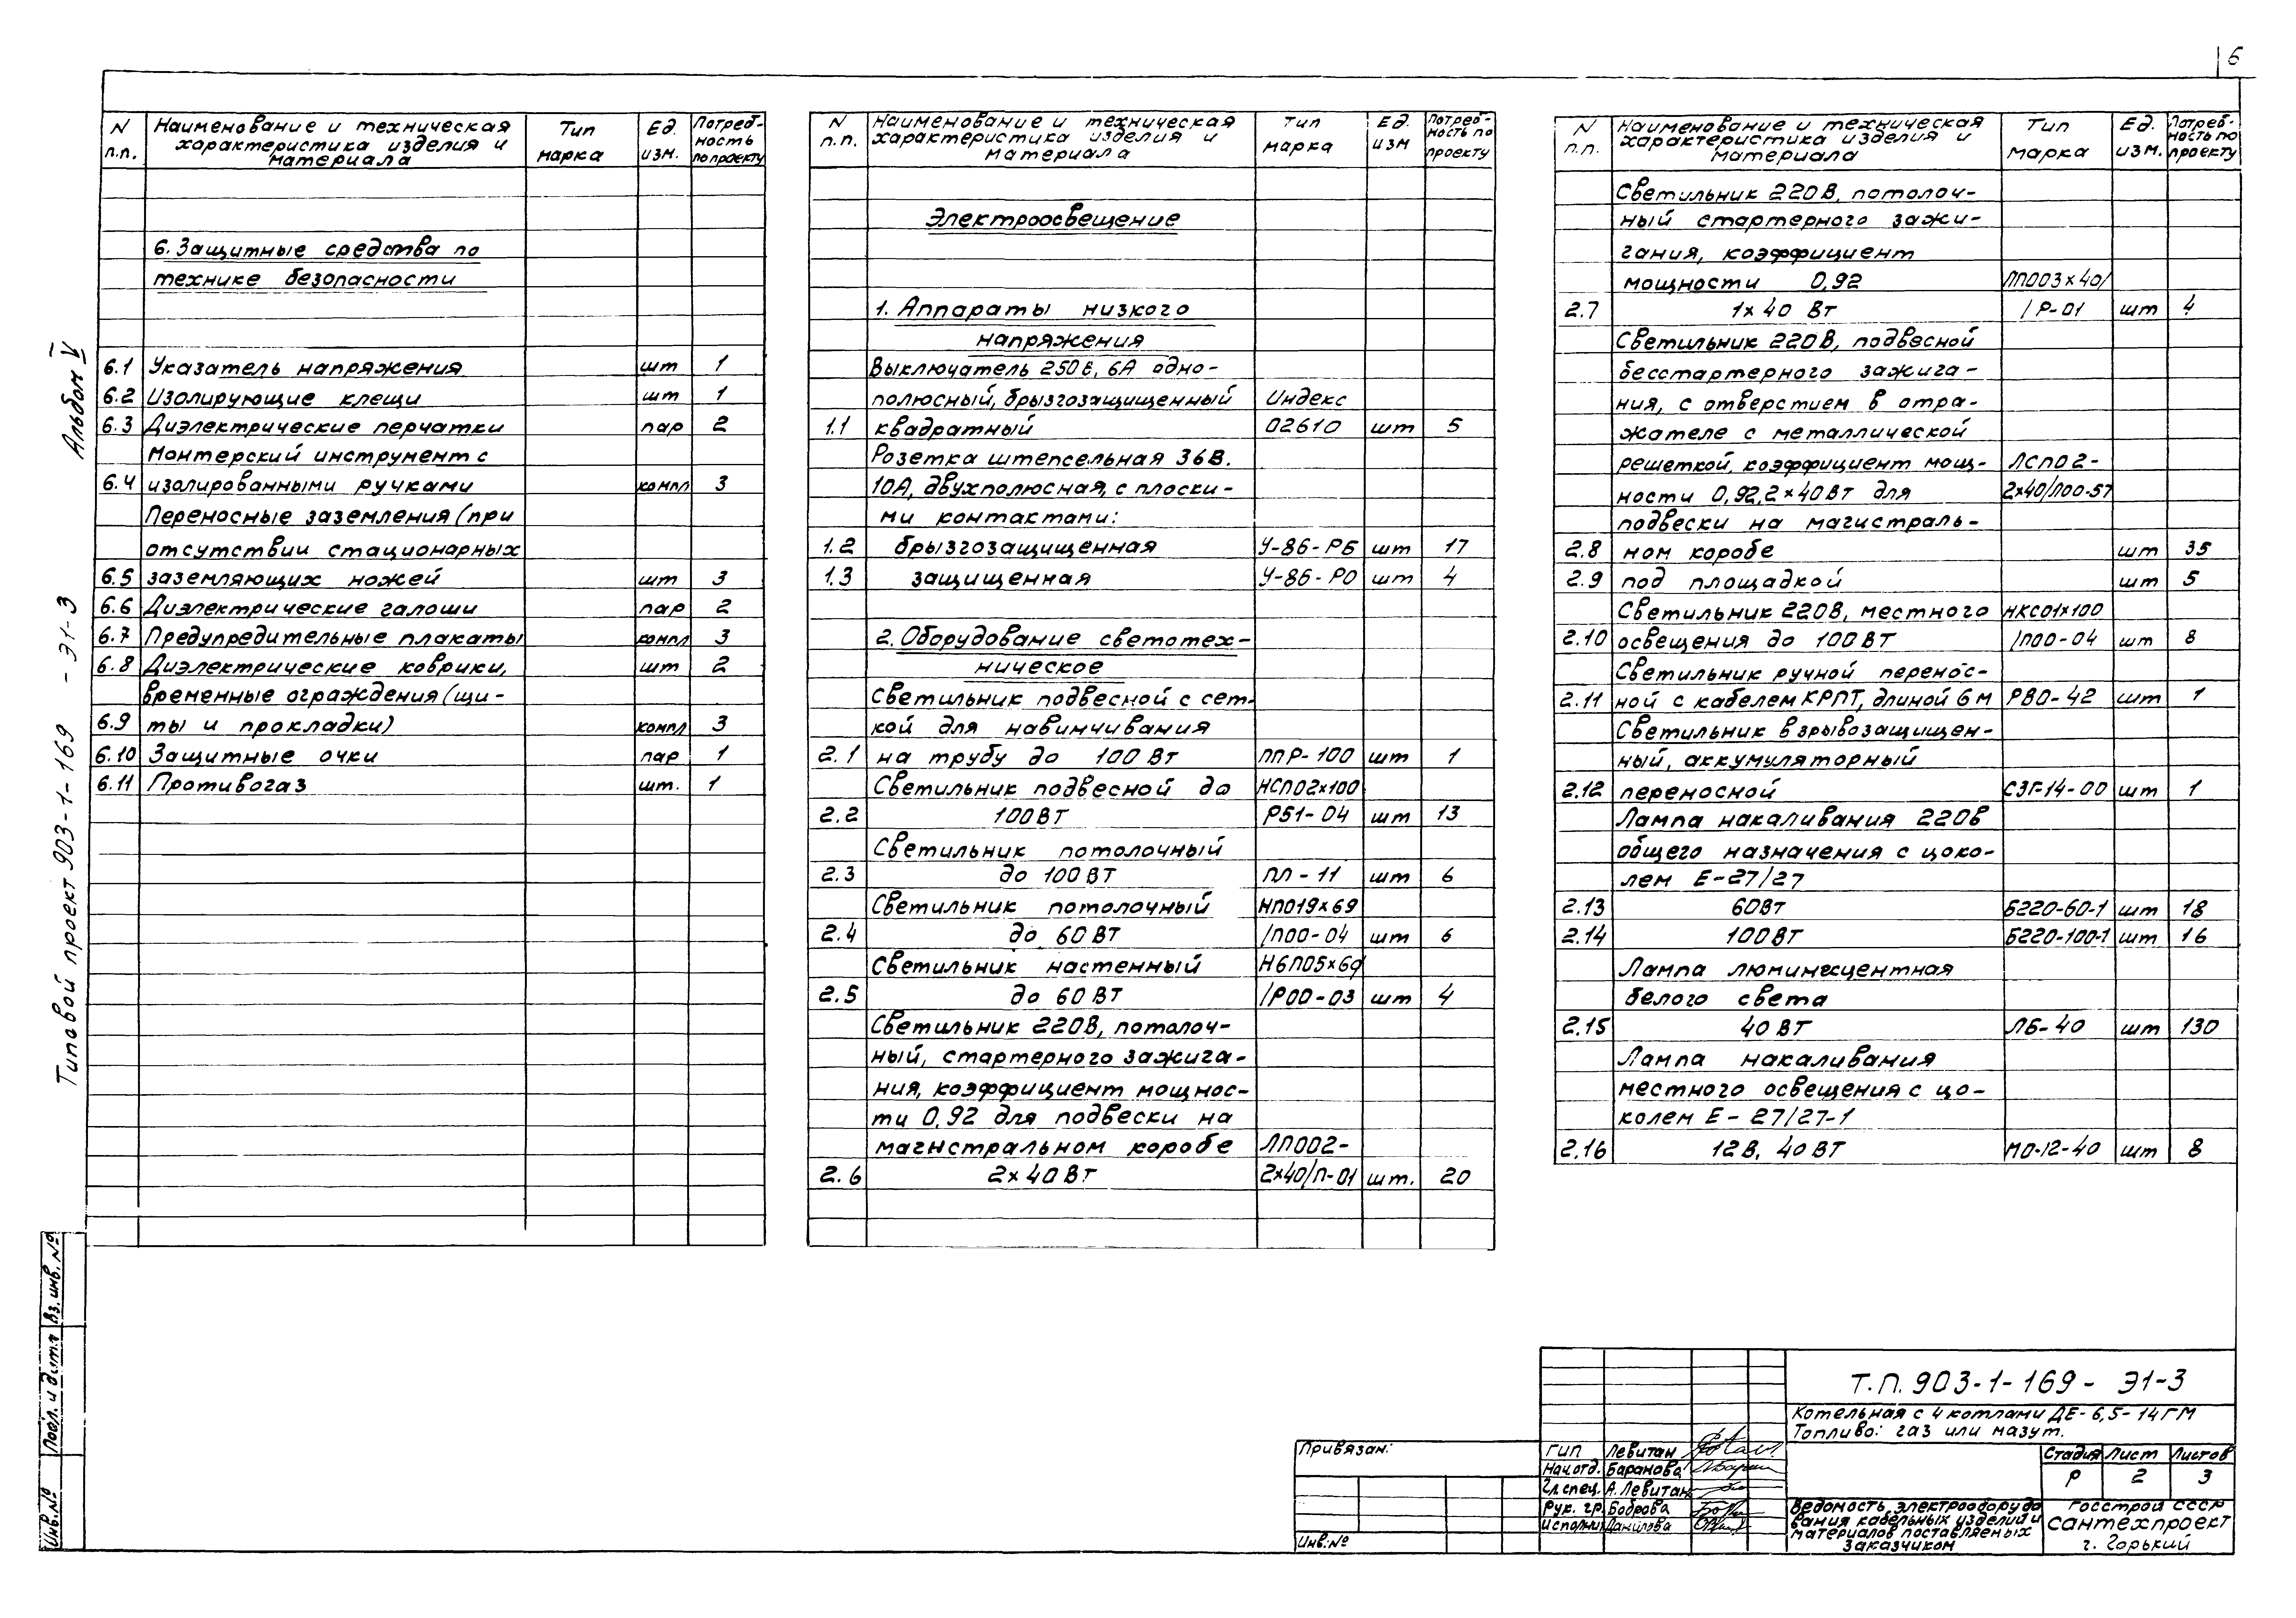 6
Альбом V
Типовой проект 903-1-169 - Э1-3
N п.п.
Наименование и техническая характеристика изделия и материала
Тип марка
Ед. изм.
Потреб-ность по проекту
6. Защитные средства по
технике безопасности
6.1 Указатель напряжения шт 1
6.2 Изолирующие клещи шт 1
6.3 Диэлектрические перчатки пар 2
Монтерский инструмент с
6.4 изолированными ручками компл 3
Переносные заземления (при
отсутствии стационарных
6.5 заземляющих ножей шт 3
6.6 Диэлектрические галоши пар 2
6.7 Предупредительные плакаты компл 3
6.8 Диэлектрические коврики, шт 2
временные ограждения (щи-
6.9 ты и прокладки) компл 3
6.10 Защитные очки пар 1
6.11 Противогаз шт. 1
N п.п.
Наименование и техническая характеристика изделия и материала
Тип марка
Ед. изм
Потреб-ность по проекту
Электроосвещение
1. Аппараты низкого
напряжения
Выключатель 250в, 6А одно-
полюсный, брызгозащищенный Индекс
1.1 квадратный 02610 шт 5
Розетка штепсельная 36В.
10А, двухполюсная, с плоски-
ми контактами:
1.2 брызгозащищенная У-86-РБ шт 17
1.3 защищенная У-86-РО шт 4
2. Оборудование светотех-
ническое
Светильник подвесной с сет-
кой для навинчивания
2.1 на трубу до 100 Вт ППР-100 шт 1
Светильник подвесной до НСП02х100
2.2 100Вт Р51-04 шт 13
Светильник потолочный
2.3 до 100 Вт ПЛ-11 шт 6
Светильник потолочный НП019х69
2.4 до 60 Вт /П00-04 шт 6
Светильник настенный НБП05х60
2.5 до 60 Вт /Р00-03 шт 4
Светильник 220В, потолоч-
ный, стартерного зажига-
ния, коэффициент мощнос-
ти 0,92 для подвески на
магистральном коробе ЛП002-
2.6 2х40 Вт 2х40/П-01 шт. 20
N п.п.
Наименование и техническая характеристика изделия и материала
Тип марка
Ед. изм.
Потреб-ность по проекту
Светильник 220В, потолоч-
ный стартерного зажи-
гания, коэффициент
мощности 0,92 ЛП003х40/
2.7 1х40 Вт /Р-01 шт 4
Светильник 220В, подвесной
бесстартерного зажига-
ния, с отверстием в отра-
жателе с металлической
решеткой, коэффициент мощ- ЛСП02-
ности 0,92, 2х40 Вт для 2х40/Л00-57
подвески на магистраль-
2.8 ном коробе шт 35
2.9 под площадкой шт 5
Светильник 220В, местного НКС01х100
2.10 освещения до 100 Вт /П00-04 шт 8
Светильник ручной перенос-
2.11 ной с кабелем КРПТ, длиной 6 м РВО-42 шт 1
Светильник взрывозащищен-
ный, аккумуляторный
2.12 переносной СЗГ-14-00 шт 1
Лампа накаливания 220В
общего назначения с цоко-
лем Е-27/27
2.13 60Вт Б220-60-1 шт 18
2.14 100Вт Б220-100-1 шт 16
Лампа люминесцентная
белого света
2.15 40 Вт ЛБ-40 шт 130
Лампа накаливания
местного освещения с цо-
колем Е-27/27-1
2.16 12 В, 40 Вт МО-12-40 шт 8
Вз. инв. №
Подп. и дата
Инв. №
Привязан:
Инв. №
ГИП Левитан
Нач.отд. Баранова
Гл.спец. А.Левитан
Рук. гр. Боброва
Исполнил Данилова
Т.П. 903-1-169- Э1-3
Котельная с 4 котлами ДЕ-6,5-14ГМ
Топливо: газ или мазут.
Стадия Лист Листов
Р 2 3
Ведомость электрооборудо
вания кабельных изделий и
материалов поставляемых
заказчиком
Госстрой СССР
Сантехпроект
г. Горький